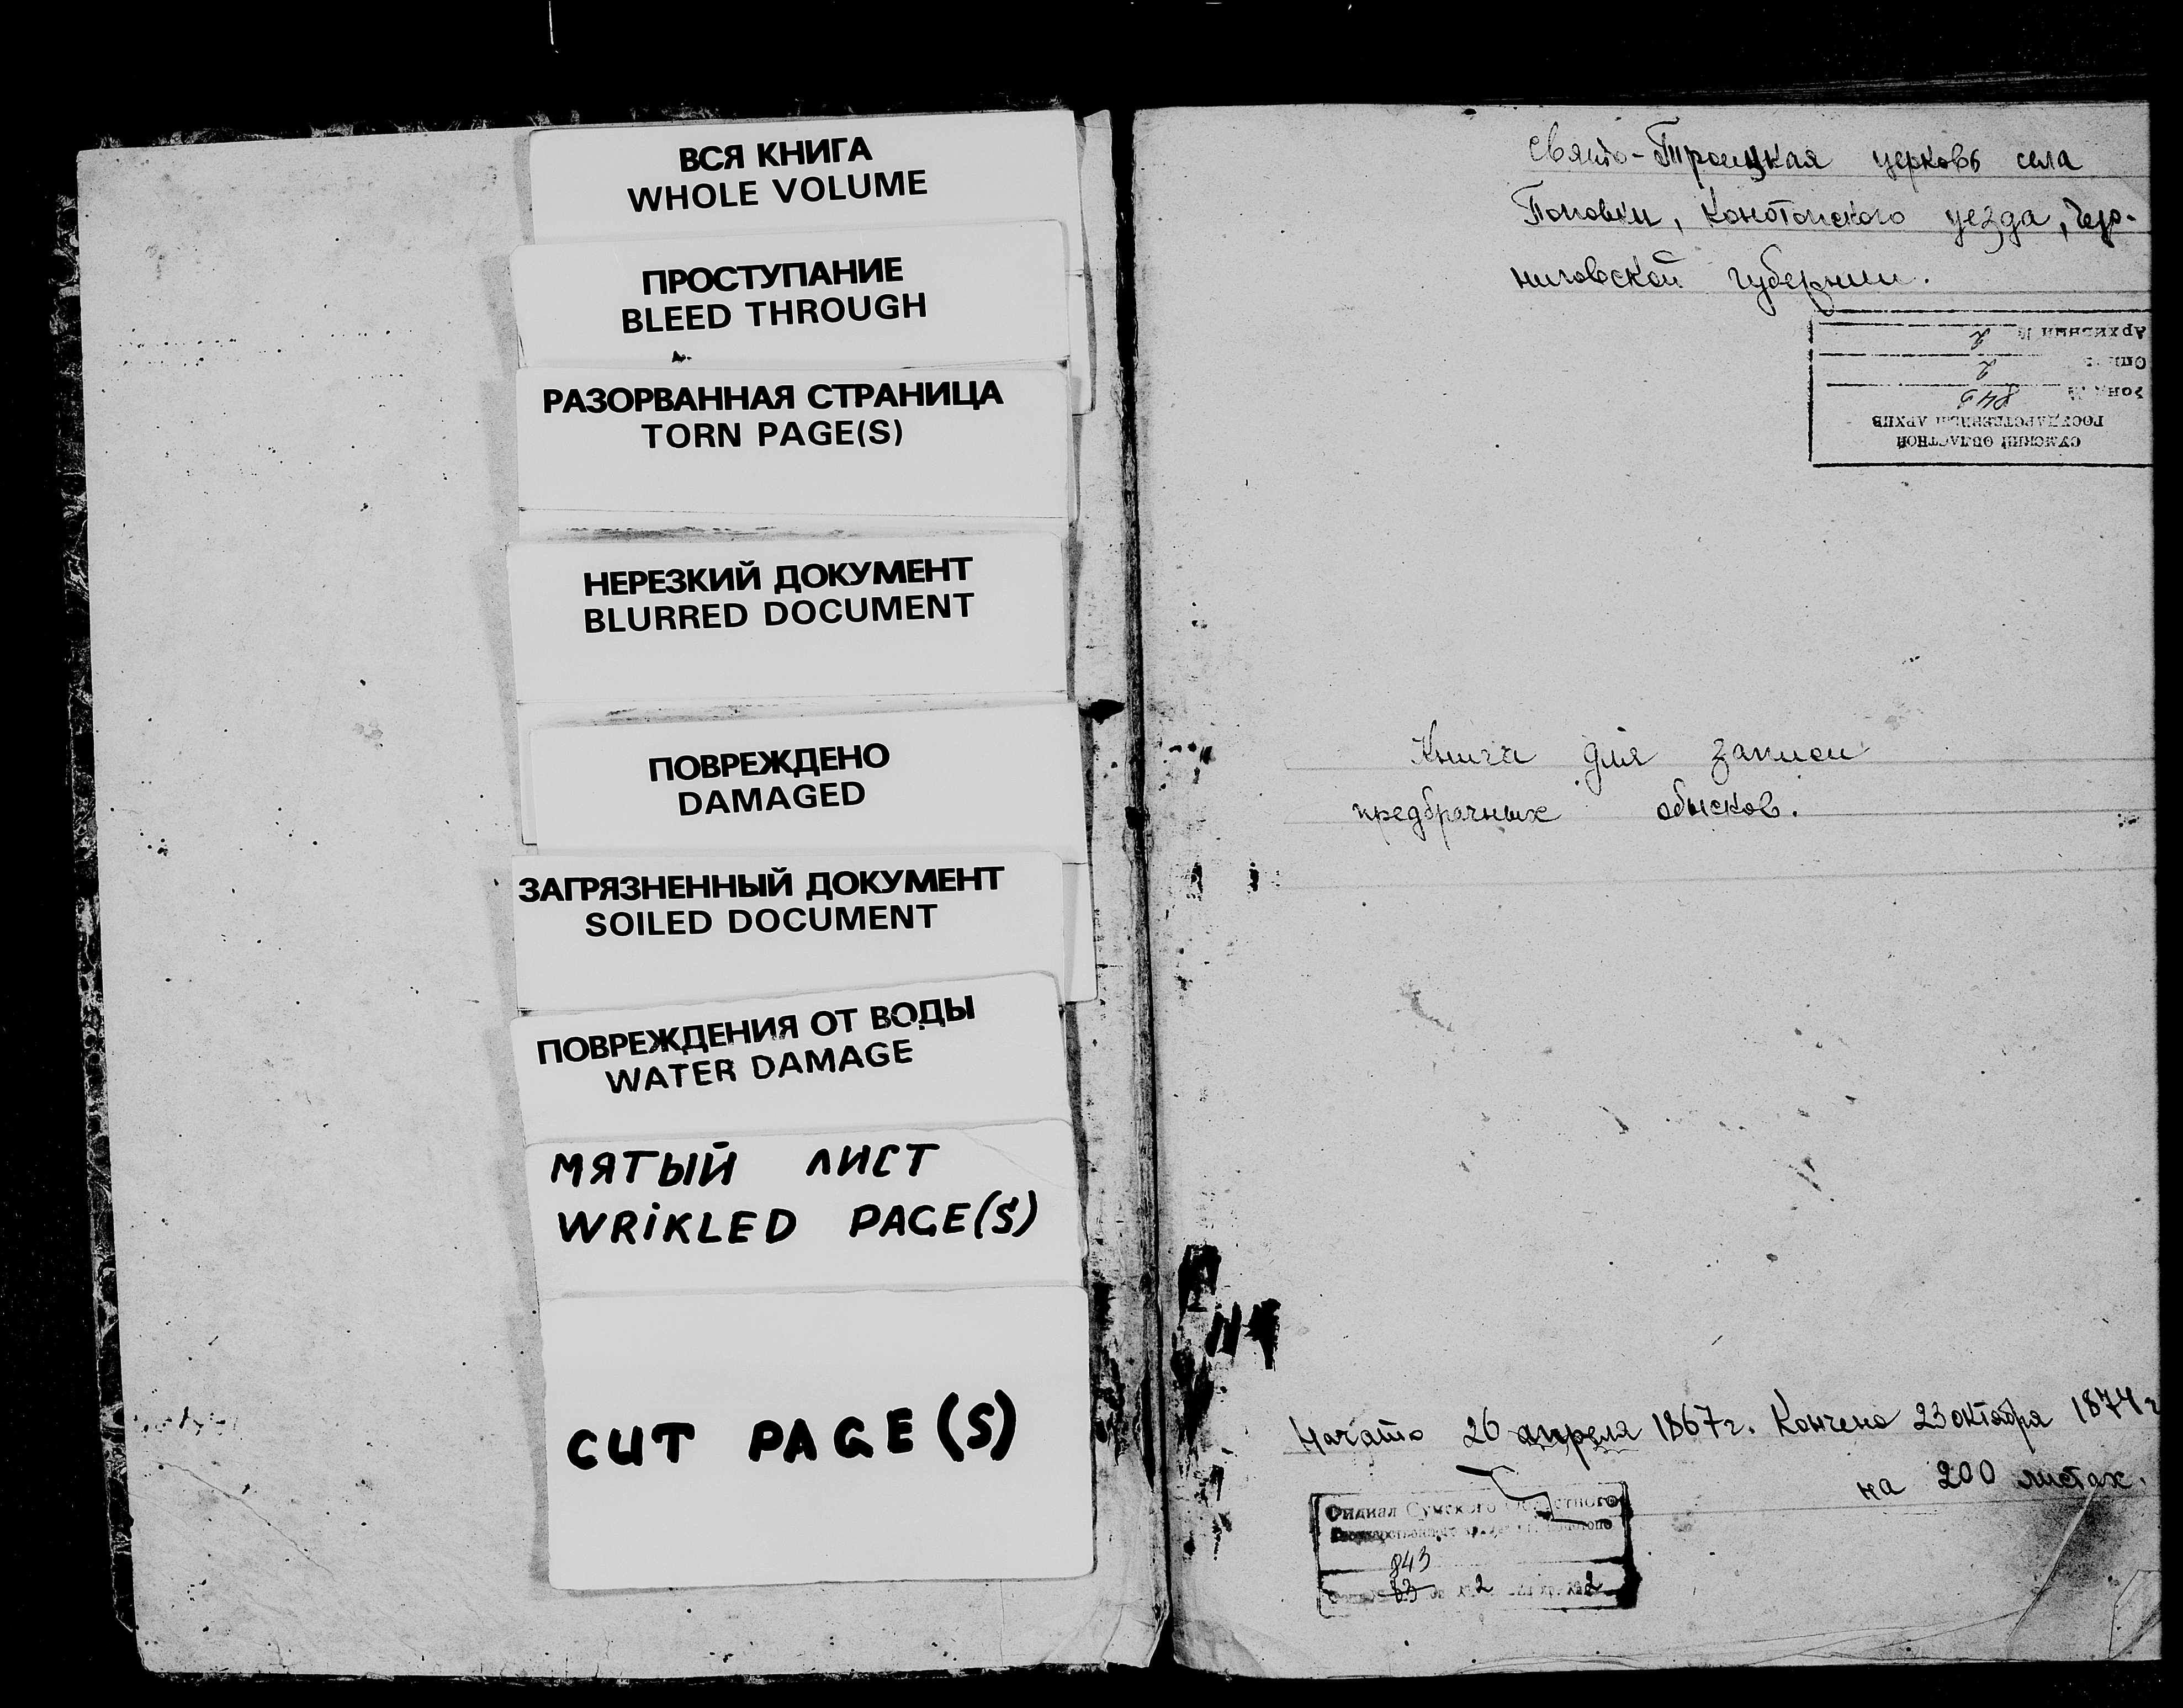 ВСЯ КНИГА
WHOLE VOLUME
ПРОСТУПАНИЕ
BLEED THROUGH
РАЗОРВАННАЯ СТРАНИЦА
TORN PAGE(S)
НЕРЕЗКИЙ ДОКУМЕНТ
BLURRED DOCUMENT
ПОВРЕЖДЕНО
DAMAGED
ЗАГРЯЗНЕННЫЙ ДОКУМЕНТ
SOILED DOCUMENT
ПОВРЕЖДЕНИЯ ОТ ВОДЫ
WATER DAMAGE
МЯТЫЙ ЛИСТ
WRiKLED PAGE(S)
CUT PAGE(S)
Свято-Троицкая церковь села
Поповки, Конотопского уезда, Чер-
ниговской губернии.
СУМСКИЙ ОБЛАСТНОЙ
ГОСУДАРСТВЕННЫЙ АРХИВ
Фонд № 843
Опись 2
Архивный № 2
Книга для записи
предбрачных обысков.
Начато 26 апреля 1867 г. Кончено 23 октября 1874 г
на 200 листах.
Филиал Сумского Областного
843
63 2 2